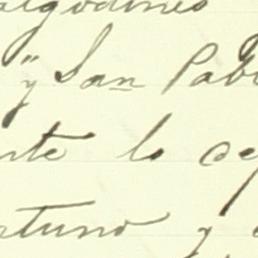 algodines
" y San Pabl
nte lo
rtuno y